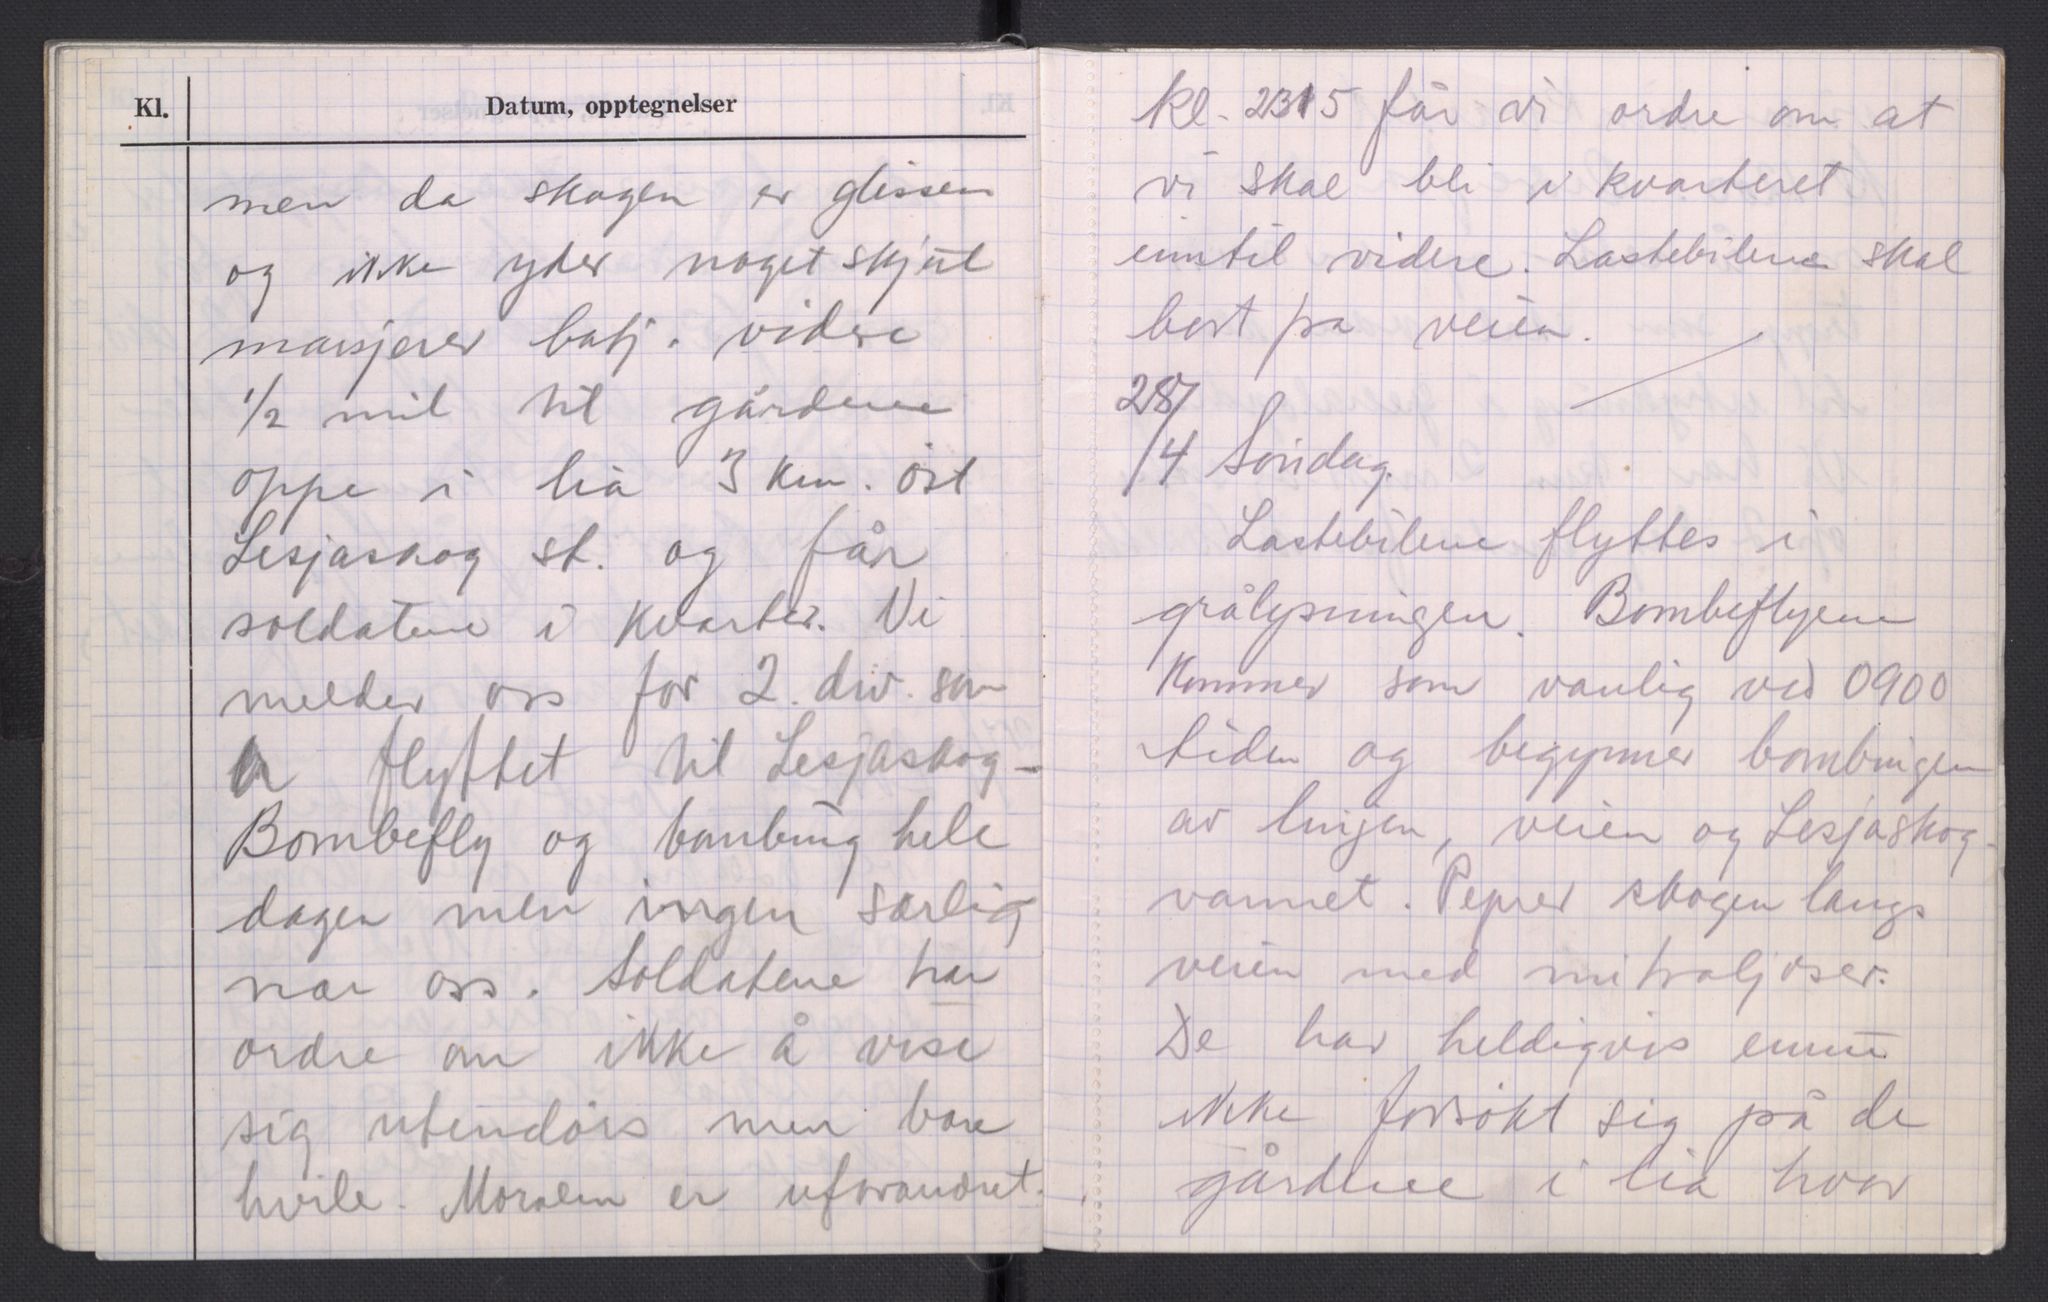 Kl.
Datum, opptegnelser
men da skogen er glissen
og ikke yder noget skjul
marsjerer batj. videre
1/2 mil til gårdene
oppe i lia 3 km. öst
Lesjaskog st. og får
soldatene i kvarter. Vi
melder oss for 2. div. som
er flyttet til Lesjaskog-
Bombefly og bombing hele
dagen men ingen særlig
nær oss. Soldatene har
ordre om ikke å vise
sig utendörs men bare
hvile. Moralen er uforandret.
kl. 2315 får vi ordre om at
vi skal bli i kvarteret
inntil videre. Lastebilene skal
bort på veien.
28/
/4 Söndag.
Lastebilene flyttes i
grålysningen. Bombeflyene
kommer som vanlig ved 0900
tiden og begynner bombingen
av linjen, veien og Lesjaskog-
vannet. Peprer skogen langs
veien med mitraljöser.
De har heldigvis ennu
ikke forsökt sig på de
gårdene i lia hvor